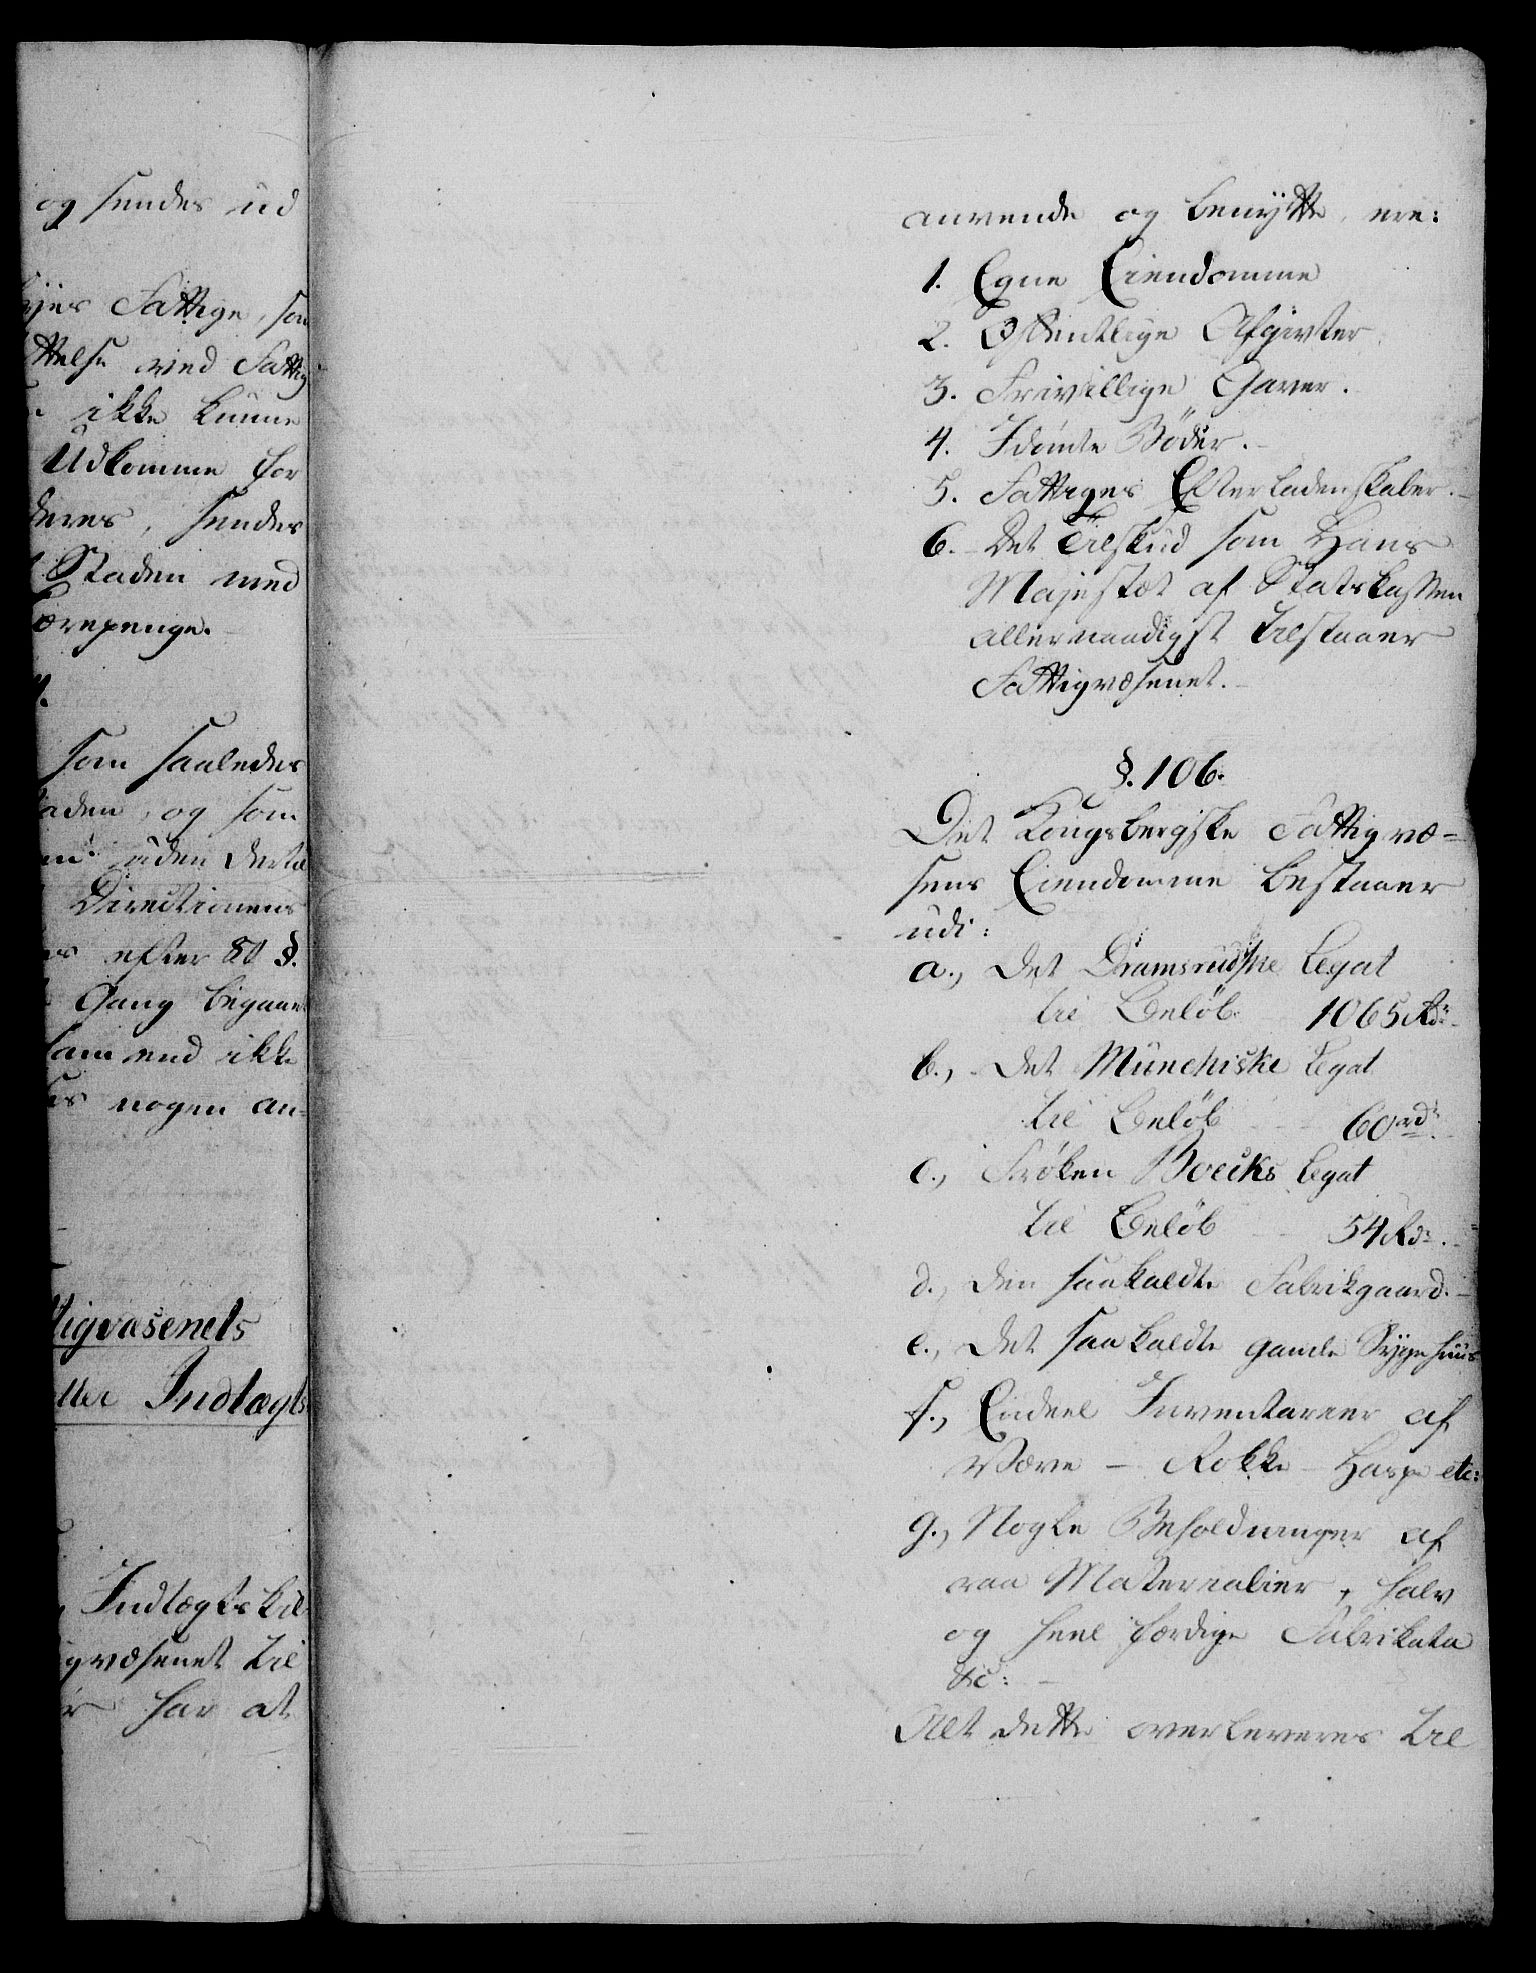 og sendes ud
Fattige, som
ttelse ved Fattig
ikke kunne
Udkomme for
deres, sendes
Staden med
ærepenge.
som saaledes
aden, og som
uden dertil
Directionens
efter 80 §.
Gang begaaet
end ikke
nogen an-
tigvæsenets
eller Indtægts
Indtægtskil
gvæsenet til
har at
anvende og benytte, ere:
1. Egne Eiendomme
2. Offentlige Afgivter
3. Frivillige Gaver.
4. Idømte Böder.
5. Fattiges Efterladenskaber.
6. Det Tilskud som Hans
Majestæt af Statskassen
allernaadigst tilstaaer
Fattigvæsenet.
§. 106.
Det Kongsbergske Fattigvæ-
sens Eiendomme bestaaer
udi:
a., Det Dramsrudske Legat
til Beløb 1065 Rdr
b., Det Münchiske Legat
til Beløb 60 rdr.
c., Frøken Boecks Legat
til Beløb 54 Rdr.
d., Den saakaldte Fabrikgaard.
e., Det saakaldte gamle Sygehuus
f., Endeel Inventarier af
Væve - Rokke - Haspe etc:
g., Nogle Beholdninger af
raa Materialier, halv
og heel færdige Fabrikata
&c:
Alt dette overleveres til